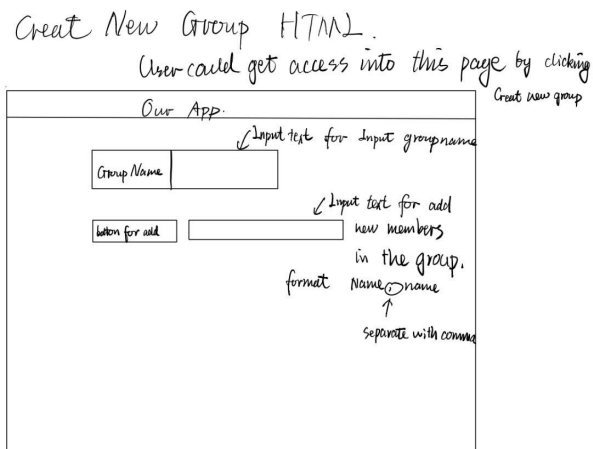 Creat New Group HTML.
User could get access into this page by clicking
Creat new group
Our App.
Input text for Input groupname
Group Name
Input text for add
button for add
new members
in the group.
format Name, name
separate with comma